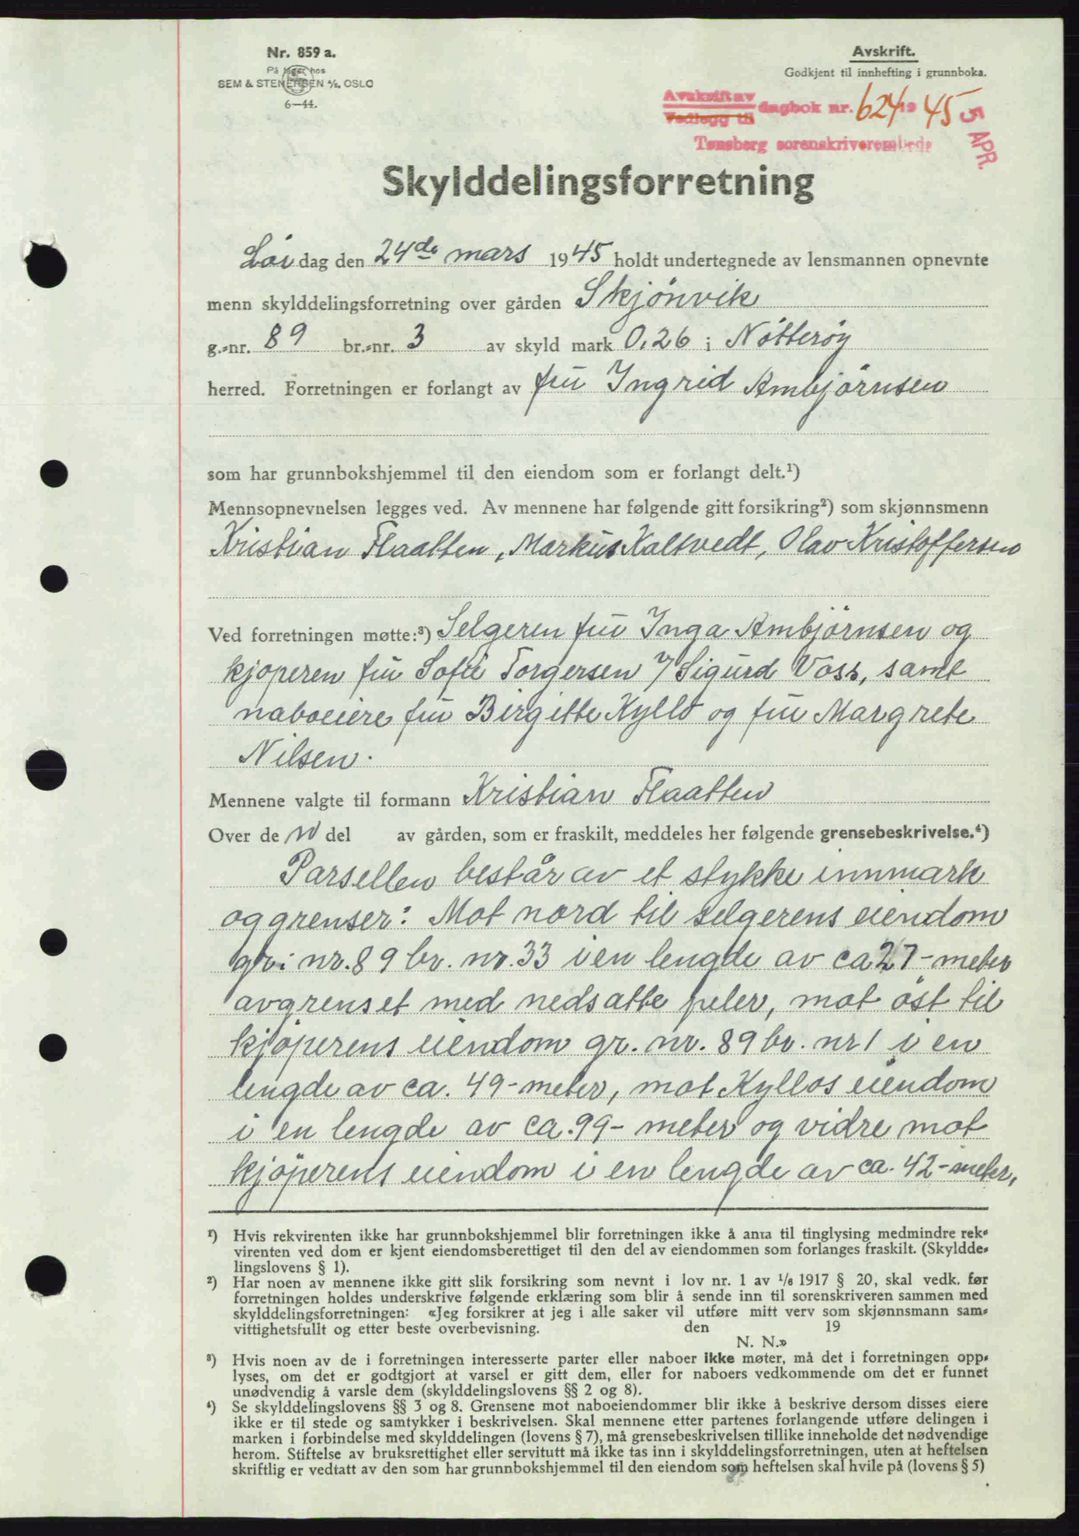 Nr. 859 a.
På lager hos
SEM & STENERSEN A/S, OSLO
6—44.
Avskrift.
Godkjent til innhefting i grunnboka.
Avskrift av
Vedlegg til
dagbok nr. 624 1945
Tønsberg sorenskriverembede
5 APR.
Skylddelingsforretning
Lör dag den 24de mars 1945 holdt undertegnede av lensmannen opnevnte
menn skylddelingsforretning over gården Skjönvik
g.-nr. 89 br.-nr. 3 av skyld mark 0,26 i Nötteröy
herred. Forretningen er forlangt av fru Ingrid Ambjörnsen
som har grunnbokshjemmel til den eiendom som er forlangt delt.¹)
Mennsopnevnelsen legges ved. Av mennene har følgende gitt forsikring²) som skjønnsmenn
Kristian Flaatten, Markus Kaltvedt, Olav Kristoffersen
Ved forretningen møtte:³) Selgeren fru Inga Ambjörnsen og
kjöperen fru Sofie Torgersen v/ Sigurd Voss, samt
naboeiere fru Birgitte Kyllö og fru Margrete
Nilsen.
Mennene valgte til formann Kristian Flaatten
Over de n del av gården, som er fraskilt, meddeles her følgende grensebeskrivelse.⁴)
Parsellen består av et stykke innmark
og grenser: Mot nord til selgerens eiendom
gr. nr. 89 br. nr. 33 i en lengde av ca 27 - meter
avgrenset med nedsatte peler, mot öst til
kjöperens eiendom gr. nr. 89 br. nr 1 i en
lengde av ca. 49 - meter, mot Kyllös eiendom
i en lengde av ca. 99 - meter og vidre mot
kjöperens eiendom i en lengde av ca. 42 - meter,
¹) Hvis rekvirenten ikke har grunnbokshjemmel blir forretningen ikke å anta til tinglysing medmindre rek-
virenten ved dom er kjent eiendomsberettiget til den del av eiendommen som forlanges fraskilt. (Skyldde-
lingslovens § 1).
²) Har noen av mennene ikke gitt slik forsikring som nevnt i lov nr. 1 av 1/6 1917 § 20, skal vedk. før
forretningen holdes underskrive følgende erklæring som blir å sende inn til sorenskriveren sammen med
skylddelingsforretningen: «Jeg forsikrer at jeg i alle saker vil utføre mitt verv som skjønnsmann sam-
vittighetsfullt og etter beste overbevisning. den 19
N. N.»
³) Hvis noen av de i forretningen interesserte parter eller naboer ikke møter, må det i forretningen opp-
lyses, om det er godtgjort at varsel er gitt dem, eller for naboers vedkommende om det er funnet
unødvendig å varsle dem (skylddelingslovens §§ 2 og 8).
⁴) Se skylddelingslovens §§ 3 og 8. Grensene mot naboeiendommer blir ikke å beskrive dersom disses eiere
ikke er til stede og samtykker i beskrivelsen. Skal mennene etter partenes forlangende utføre delingen i
marken i forbindelse med skylddelingen (lovens § 7), må grensebeskrivelsen tillike inneholde det nødvendige
herom. Stiftelse av bruksrettighet eller servitutt må ikke tas inn i skylddelingsforretningen, uten at heftelsen
skriftlig er vedtatt av den som har grunnbokshjemmel til den eiendom som heftelsen skal hvile på (lovens § 5)